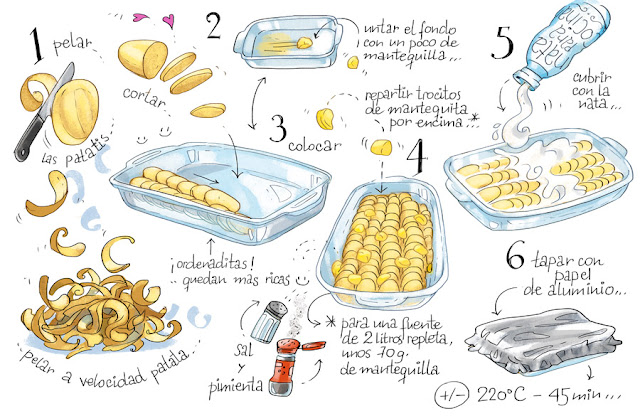 1 pelar
cortar
las patatis
pelar a velocidad patata...
2
untar el fondo
con un poco de
mantequilla...
3
colocar
¡ordenaditas!
..quedan más ricas
repartir trocitos
de mantequita
por encima...*
4
sal
y
pimienta
* para una fuente
de 2 litros repleta,
unos 70 g.
de mantequilla
5
cubrir
con la
nata...
6
tapar con
papel
de aluminio...
+/- 220°C - 45 min...